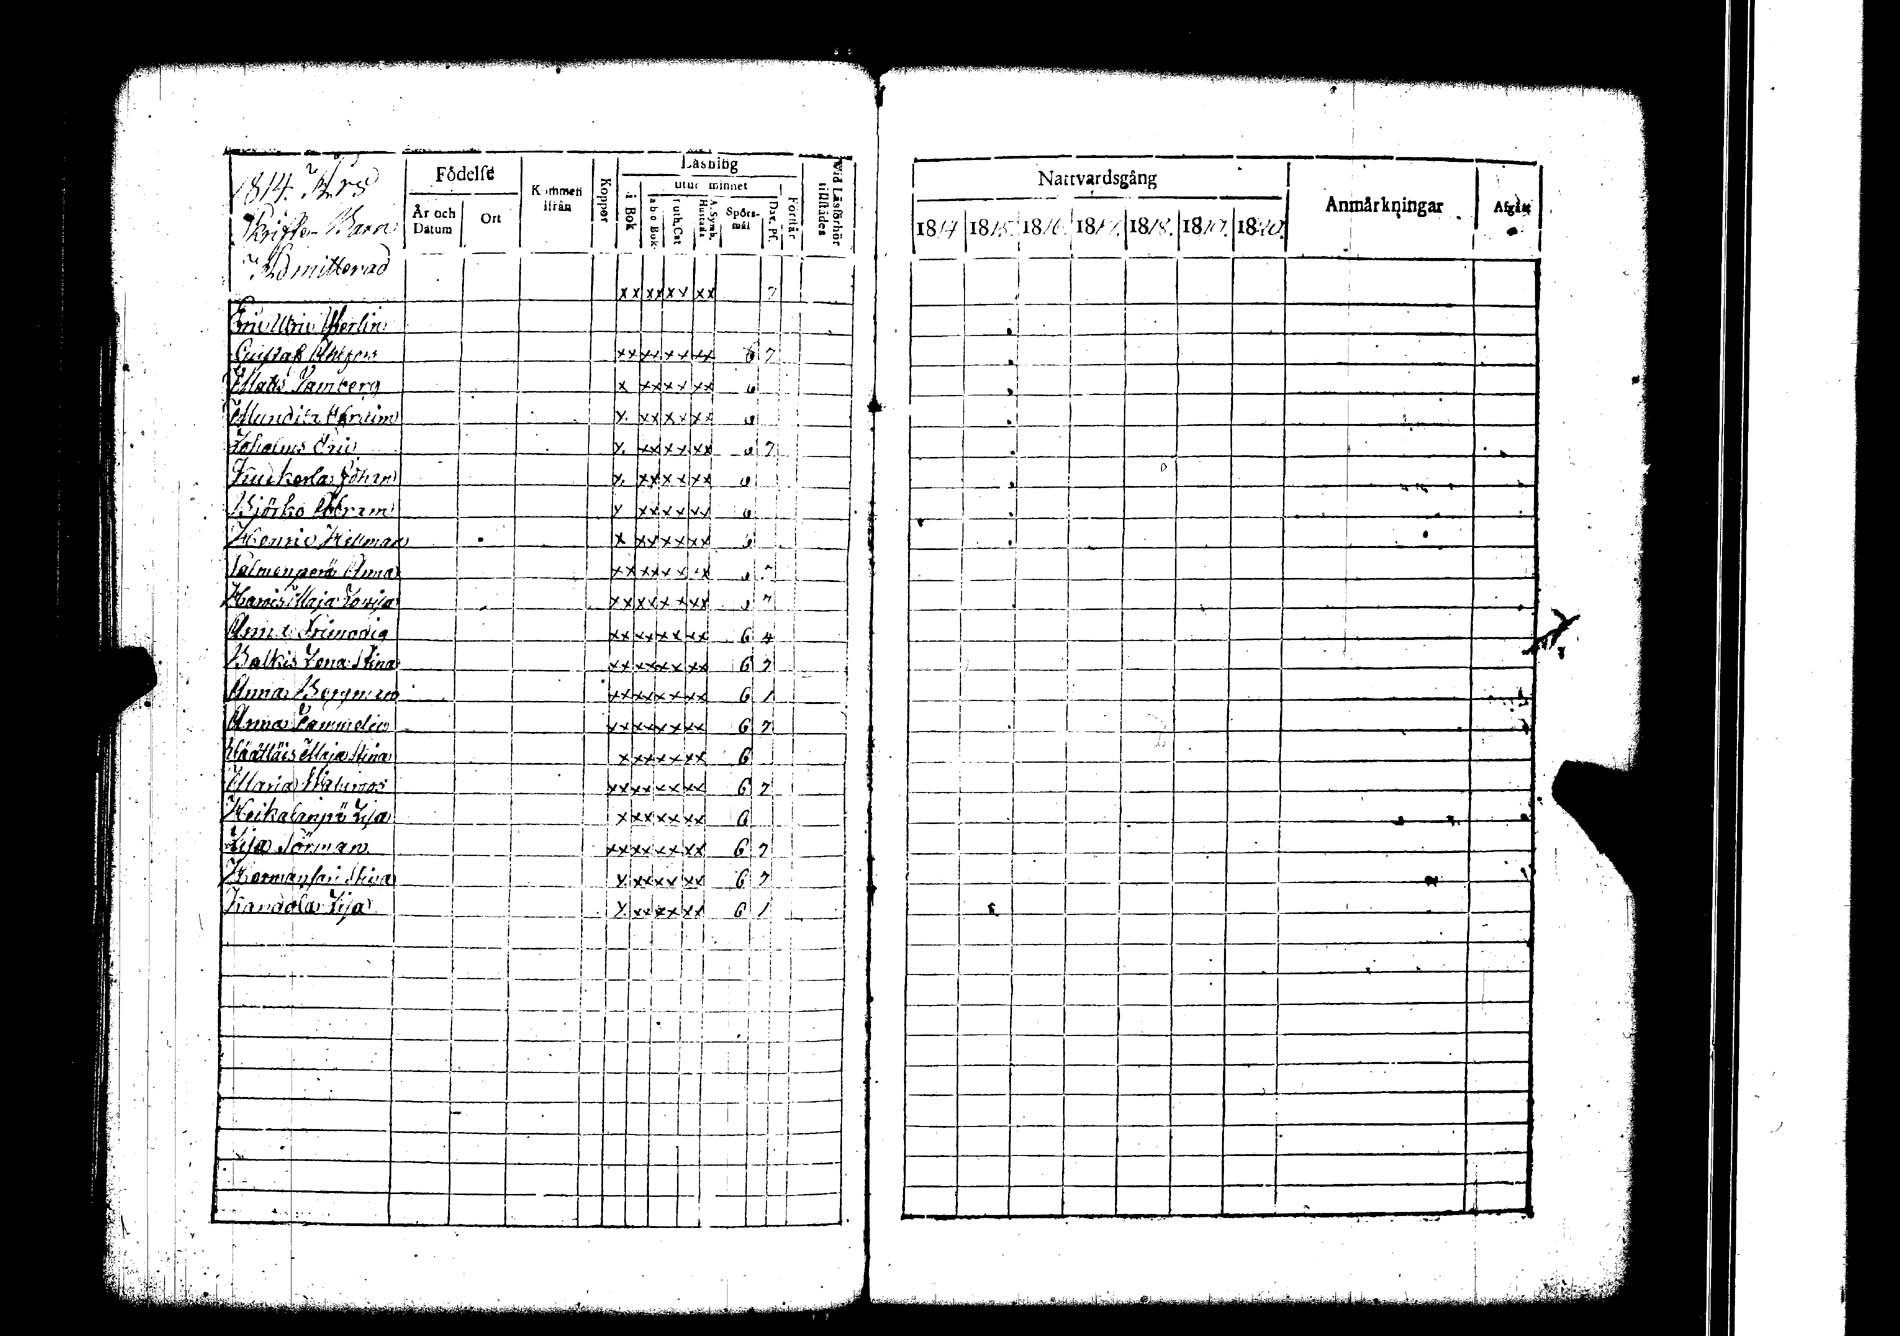 1814. Års
Skrifte-Barn
Admitterad
Födelse
År och Datum
Ort
Kommen ifrån
Koppor
Läsning
i Bok
utur minnet
a b c Bok.
Luth. Cat
A. Symb. Hustafla
Spörs-mål
Dav. Ps.
Förstår
Vid Läsförhör tillstädes
Nattvardsgång
1814 1815. 1816. 1817. 1818. 1819. 1820.
Anmärkningar
Afgått
xx xx xx xx 7
Eric
Gustaf xx xx xx xx 6 7
Matts Tamberg x xx xx xx 6
Efraim x xx xx xx 6
Eric x. xx xx xx 6 7
Johan x. xx xx xx 6
Björko Abram x xx xx xx 6
Henric Hellman x xx xx xx 6
Salmenperä Anna xx xx xx xx 6 7
Maja Lovisa xx xx xx xx 6 7
Anna Frimodig xx xx xx xx 6 4
Balkis Lena Stina xx xx xx xx 6 7
Anna Bergman xx xx xx xx 6 1
Anna Tammelin xx xx xx xx 6 7
Maja Stina x xx xx xx 6
Maria xx xx xx xx 6 7
Lisa x xx xx xx 6
Lisa Törman xx xx xx xx 6 7
Stina x xx xx xx 6 7
Kandola Lisa x xx xx xx 6 1